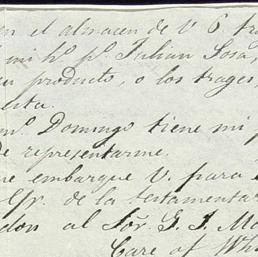 en el almacen de V 6 tra
mi hº pº Julian Sosa,
su producto, o los trages
esta.
mº. Domingo tiene mi p
de representarme.
me embarque V. para
de la testamentar
don al Sőr. G. J. Ma
Care of Wh